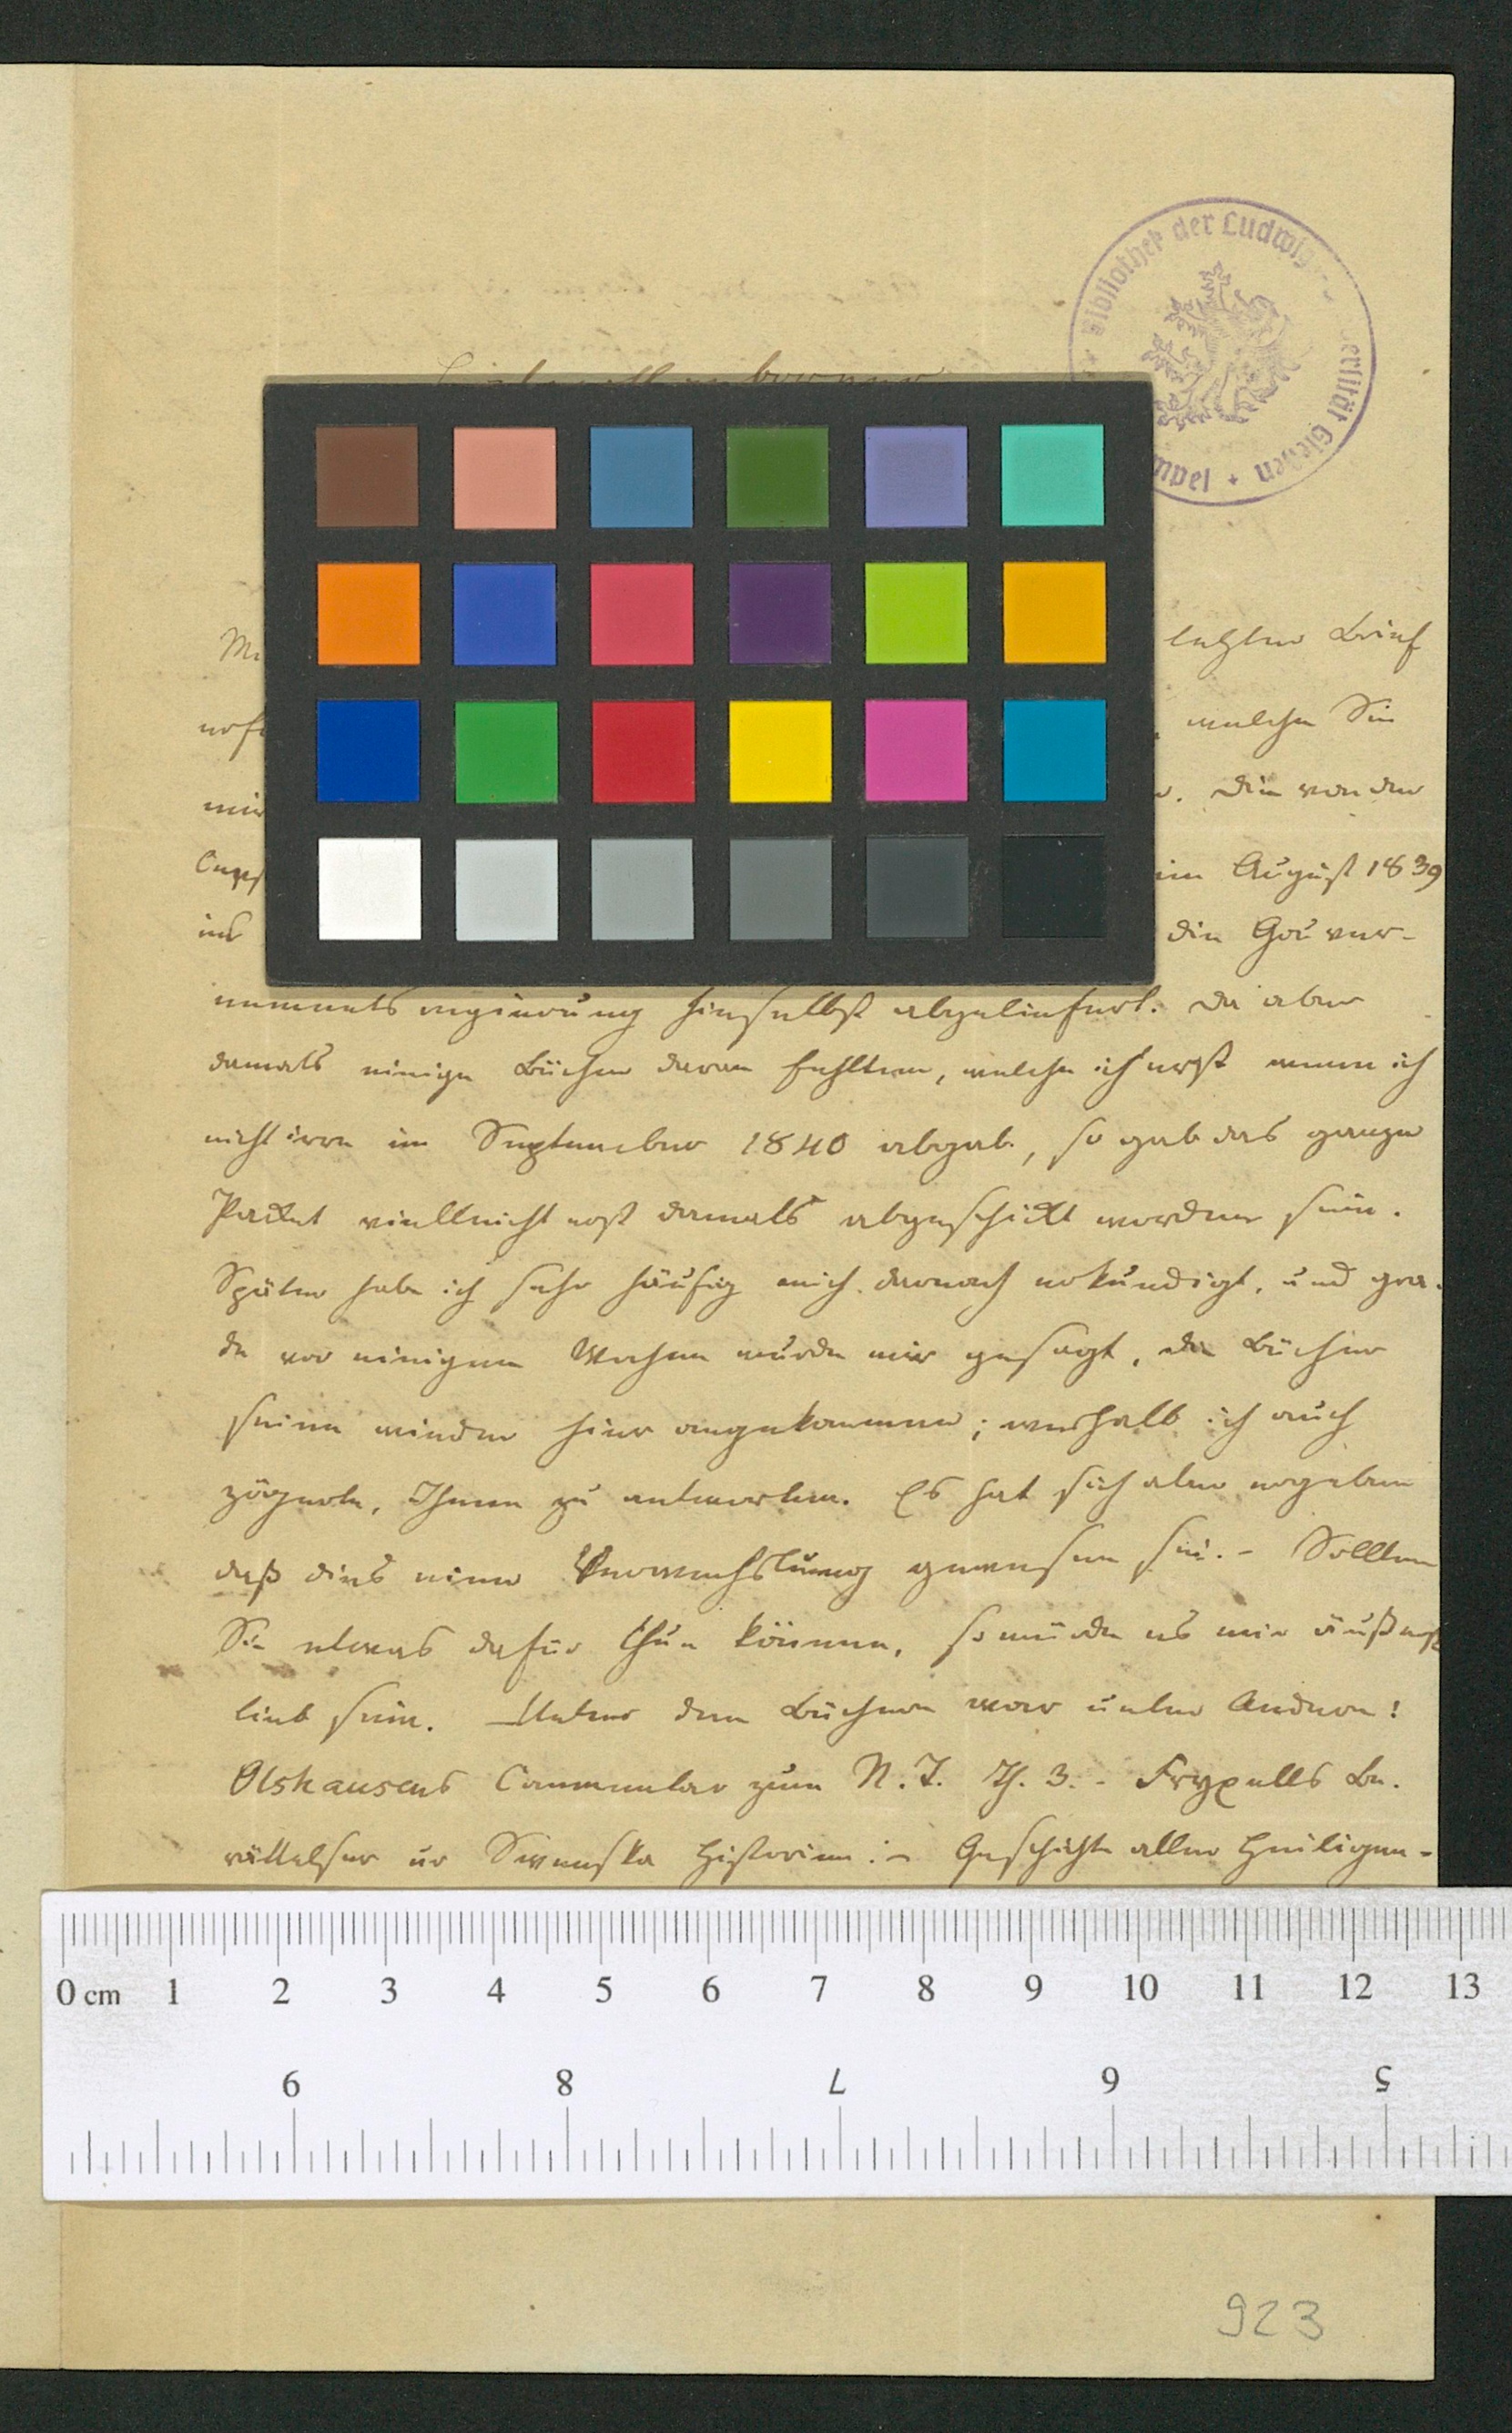 Bibliothek der Ludwigs
letzter Brief
welche Sie
mir
Die von der
im August 1839
ins
die Gouver-
nements regierung hieselbst abgeliefert. Da aber
damals einige Bücher daran fehlten, welche ich erst wenn ich
nicht irre im September 1840 abgab, so gab das ganze
Packet vielleicht erst damals abgeschickt worden sein.
Später habe ich sehr häufig mich darnach erkundigt, und gra-
de vor einigen Wochen wurde mir gesagt, die Bücher
seien wieder hier angekommen; weshalb ich auch
zögerte, Ihnen zu antworten. Es hat sich aber ergeben
daß dies eine Verwechslung gewesen sei. - Sollten
Sie etwas dafür thun können, so würde es mir äußerst
lieb sein. Unter den Büchern war unter Andern:
Olshausens Commentar zum N. T. Th. 3. - Fryxells Be-
rättelser ur Svenska Historien: - Geschichte aller Heiligen-
0 cm 1 2 3 4 5 6 7 8 9 10 11 12 13
9 8 7 6 5
923